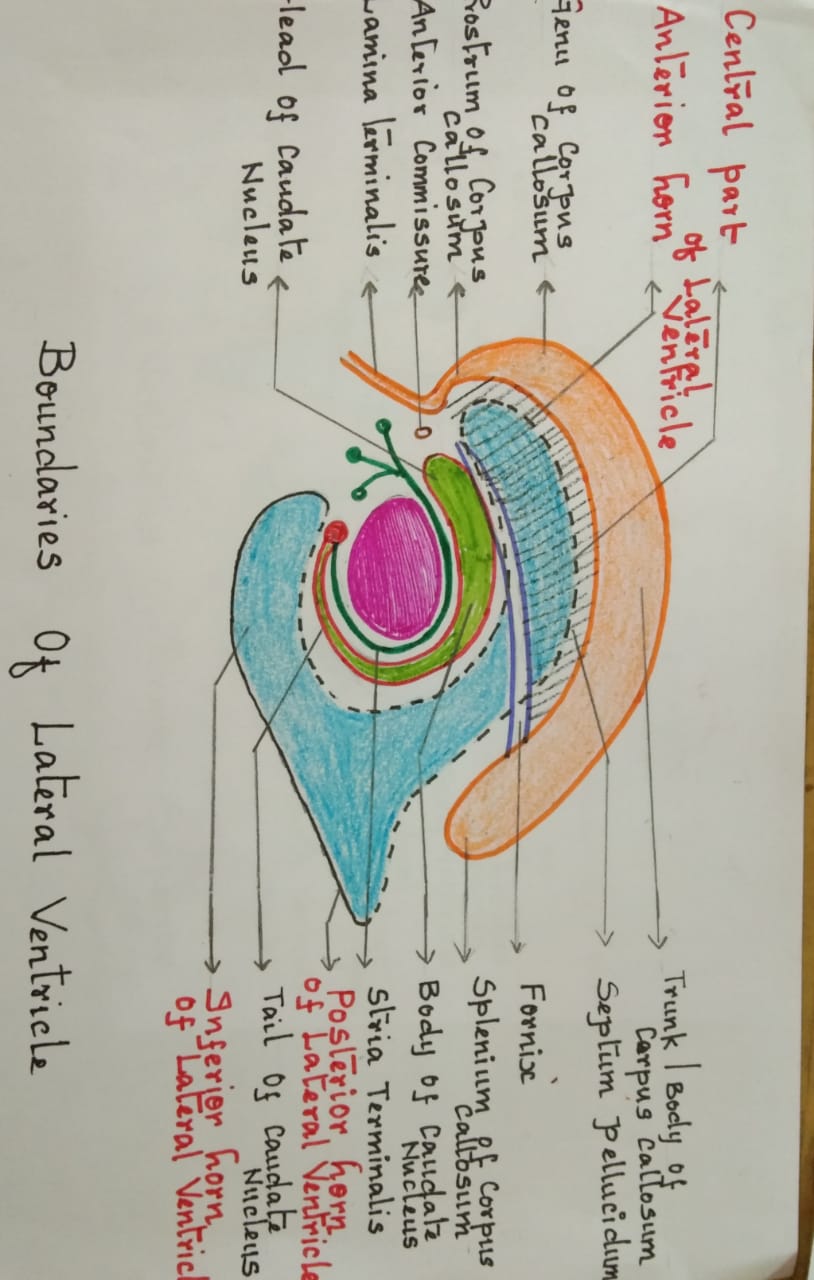 Central part
Anterior horn
of Lateral
Ventricle
Genu Of Corpus
Callosum
Rostrum Of Corpus
Callosum
Anterior Commissure
Lamina Terminalis
Head Of Caudate
Nucleus
Trunk / Body of
Corpus Callosum
Septum Pellucidum
Fornix
Splenium Of Corpus
Callosum
Body Of Caudate
Nucleus
Stria Terminalis
Posterior horn
Of Lateral Ventricle
Tail Of Caudate
Nucleus
Inferior horn
Of Lateral Ventricl
Boundaries Of Lateral Ventricle